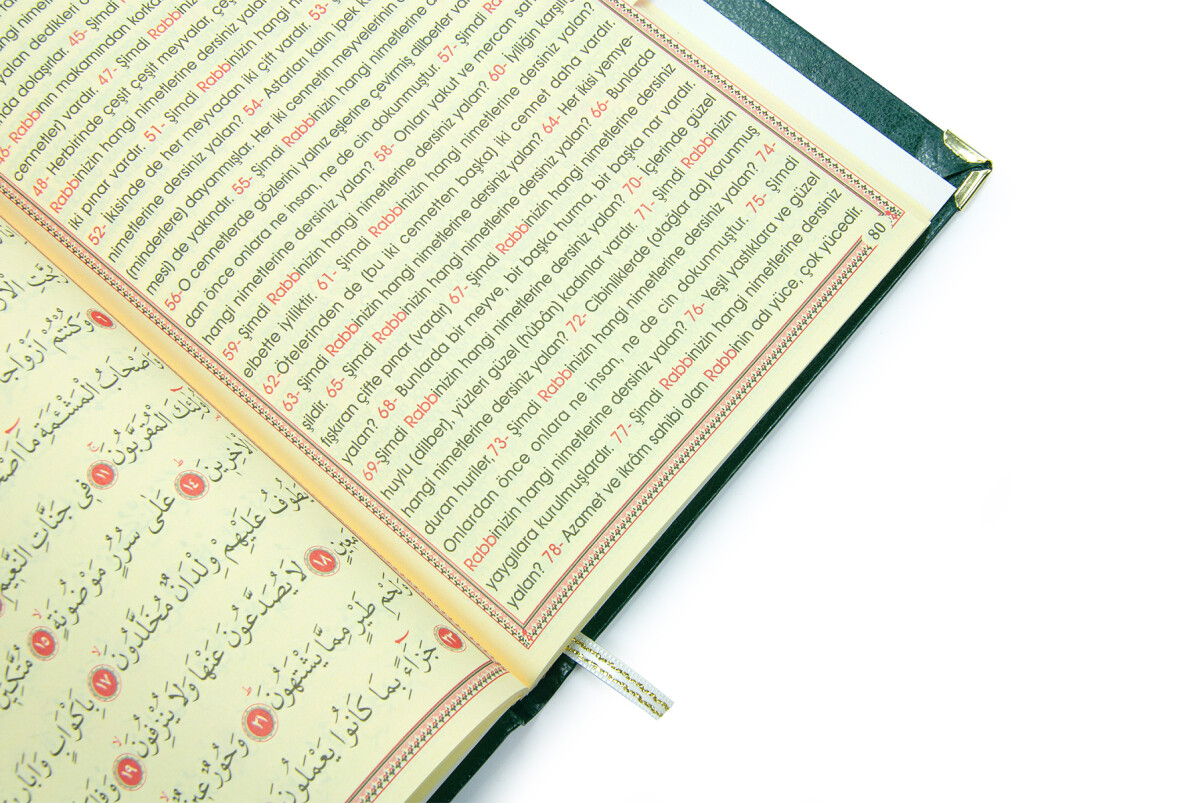 yalan dedikleri
da dolaşırlar. 45- Şimdi Rabb
46- Rabbının makamından korka
cennet(ler) vardır. 47- Şimdi Rabbinizin hangi nimetlerine
48- Herbirinde çeşit çeşit meyvalar, çeş
Rabbinizin hangi nimetlerine dersiniz yalan? 53- Şimdi
iki pınar vardır. 51- Şimdi Rabbinizin hangi nimetlerine
52- İkisinde de her meyvadan iki çift vardır.
nimetlerine dersiniz yalan? 54- Astarları kalın ipek
(minderlere) dayanmışlar. Her iki cennetin meyvelerinin
mesi de yakındır. 55- Şimdi Rabbinizin hangi nimetlerine
56- O cennetlerde gözlerini yalnız eşlerine çevirmiş dilberler var
dan önce onlara ne insan, ne de cin dokunmuştur. 57- Şimdi Rabb
hangi nimetlerine dersiniz yalan? 58- Onlar yakut ve mercan
59- Şimdi Rabbinizin hangi nimetlerine dersiniz yalan? 60- İyiliğin karşılı
elbette iyiliktir. 61- Şimdi Rabbinizin hangi nimetlerine dersiniz yalan?
62- Ötelerinden de (bu iki cennetten başka) iki cennet daha vardır.
63- Şimdi Rabbinizin hangi nimetlerine dersiniz yalan? 64- Her ikisi yemye-
şildir. 65- Şimdi Rabbinizin hangi nimetlerine dersiniz yalan? 66- Bunlarda
fışkıran çifte pınar (vardır) 67- Şimdi Rabbinizin hangi nimetlerine dersiniz
yalan? 68- Bunlarda bir meyve, bir başka hurma, bir başka nar vardır.
69- Şimdi Rabbinizin hangi nimetlerine dersiniz yalan? 70- İçlerinde güzel
huylu (dilber), yüzleri güzel (hûbân) kadınlar vardır. 71- Şimdi Rabbinizin
hangi nimetlerine dersiniz yalan? 72- Cibiniklerde (otağlar da) korunmuş
duran huriler, 73- Şimdi Rabbinizin hangi nimetlerine dersiniz yalan? 74-
Onlardan önce onlara ne insan, ne de cin dokunmuştur. 75- Şimdi
Rabbinizin hangi nimetlerine dersiniz yalan? 76- Yeşil yastıklara ve güzel
yaygılara kurulmuşlardır. 77- Şimdi Rabbinizin hangi nimetlerine dersiniz
yalan? 78- Azamet ve ikrâm sahibi olan Rabbinin adı yüce, çok yücedir.
80
وَكُنْتُمْ اَزْوَاجًا
الْمَشْـَٔمَةِ مَٓا
الْمُقَرَّبُونَ ١١ فِى جَنَّاتِ النَّعِيمِ
١٤ عَلٰى سُرُرٍ مَوْضُونَةٍ ١٥
عَلَيْهِمْ وِلْدَانٌ مُخَلَّدُونَ ١٧ بِاَكْوَابٍ
١٨ لَا يُصَدَّعُونَ عَنْهَا وَلَا يُنْزِفُونَ ١٩
طَيْرٍ مِمَّا يَشْتَهُونَ ٢١ وَحُورٌ عِينٌ
٢٣ جَزَٓاءً بِمَا كَانُوا يَعْمَلُونَ